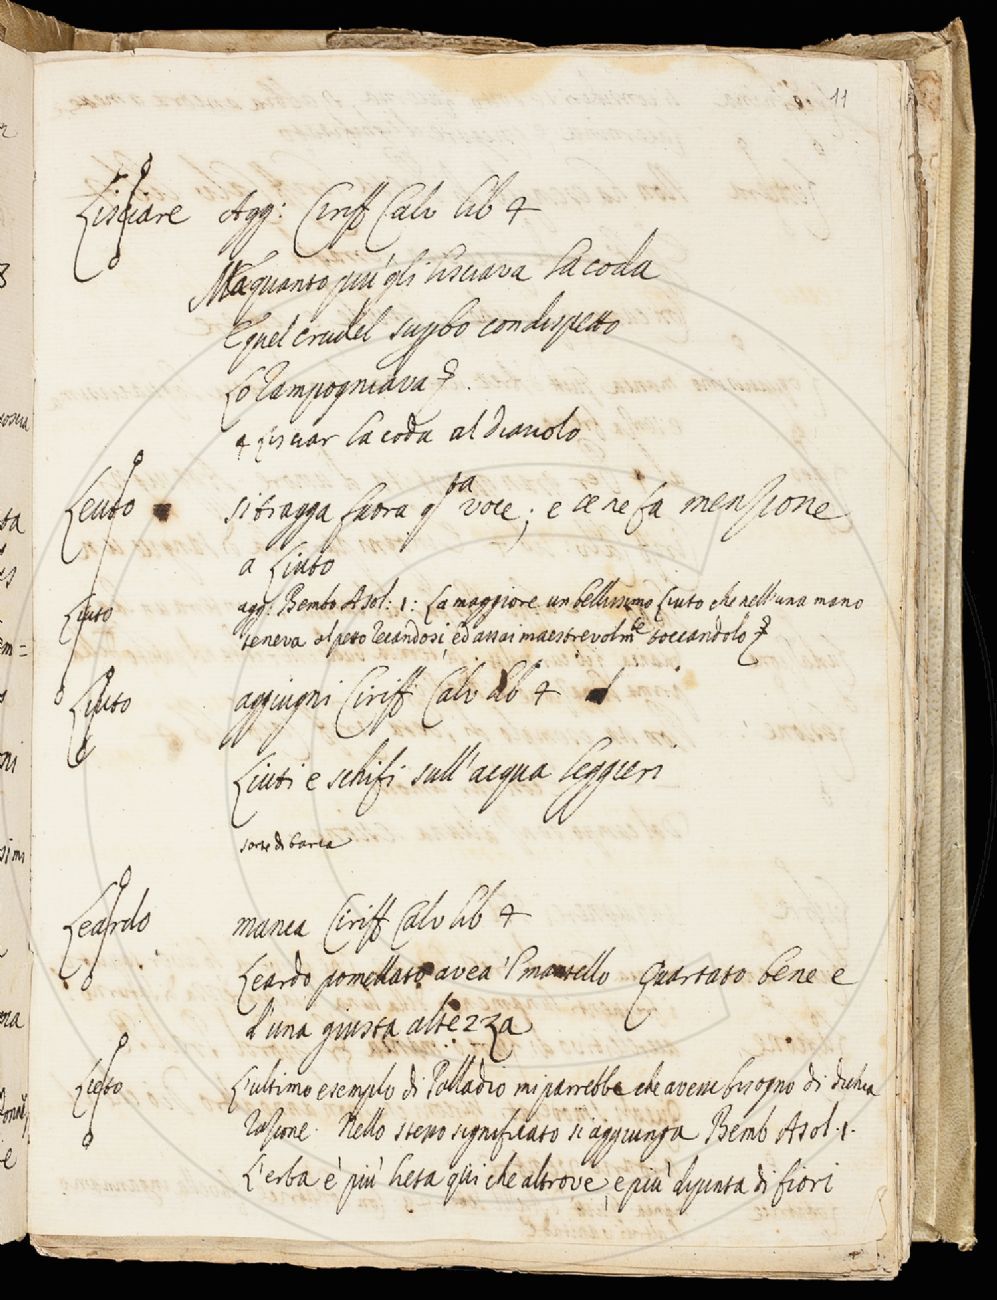 11
Lisciare Agg: Ciriff Calv lib 4
Ma quanto più gli lisciava la coda
E quel crudel supbo con dispetto
Lo Zampogniava
4 Lisciar la coda al Diavolo
Leuto si tragga fuora qsta voce; e ce ne fa menzione
a Liuto
Liuto agg. Bembo Asol: 1: La maggiore un bellissimo Liuto che nell'una mano
teneva al petto recandosi, ed assai maestrevolmte toccandolo
Liuto aggiugni Ciriff Calv lib 4
Liuti e schifi sull'acqua leggieri
sorte di barca
Leardo manca Ciriff Calv lib 4
Leardo pomellato avea 'l mantello Quartato bene e
d'una giusta altezza
Lieto L'ultimo esemplo di Palladio mi parrebbe che avesse bisogno di dichia
razione. Nello stesso significato si aggiunga Bemb Asol. 1.
L'erba è più lieta qui che altrove, e più dipinta di fiori